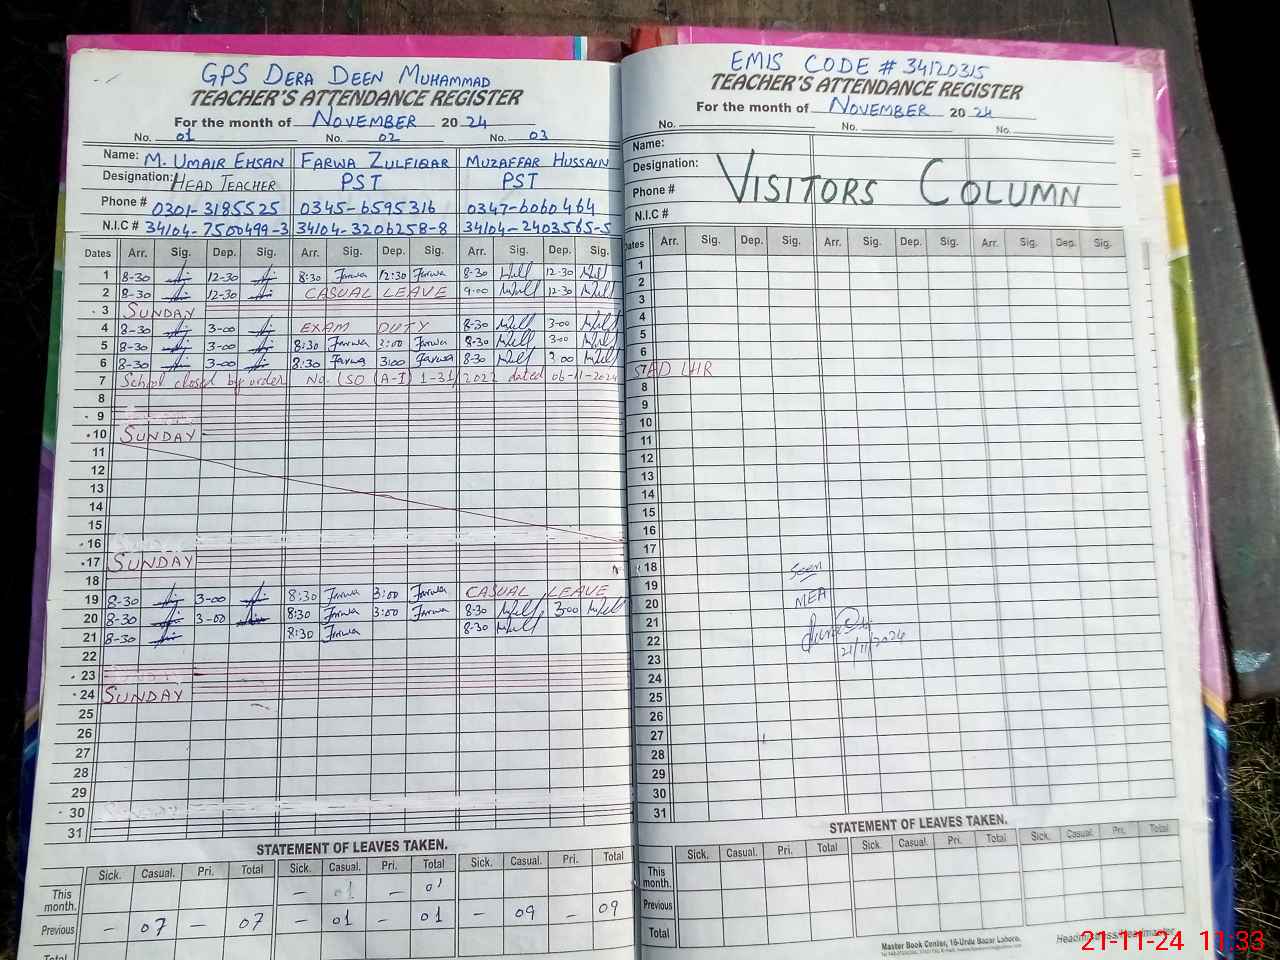 GPS DERA DEEN MUHAMMAD
TEACHER'S ATTENDANCE REGISTER
For the month of NOVEMBER 2024
No. 01 No. 02 No. 03
Name: M. UMAIR EHSAN FARWA ZULFIQAR MUZAFFAR HUSSAIN
Designation: HEAD TEACHER PST PST
Phone # 0301-3185525 0345-6595316 0347-6060464
N.I.C # 34104-7500499-3 34104-3206258-8 34104-2403565-5
Dates Arr. Sig. Dep. Sig. Arr. Sig. Dep. Sig. Arr. Sig. Dep. Sig.
1 8-30 12-30 8:30 Farwa 12:30 Farwa 8-30 12-30
2 8-30 12-30 CASUAL LEAVE 9-00 12-30
3 SUNDAY
4 8-30 3-00 EXAM DUTY 8-30 3-00
5 8-30 3-00 8:30 Farwa 3:00 Farwa 8-30 3-00
6 8-30 3-00 8:30 Farwa 3:00 Farwa 8-30 3-00
7 School closed by order No. (SO (A-I) 1-31/2022 dated 06-11-2024
8
9
10 SUNDAY
11
12
13
14
15
16
17 SUNDAY
18
19 8-30 3-00 8:30 Farwa 3:00 Farwa CASUAL LEAVE
20 8-30 3-00 8:30 Farwa 3:00 Farwa 8-30 3-00
21 8-30 8:30 Farwa 8-30
22
23
24 SUNDAY
25
26
27
28
29
30
31
STATEMENT OF LEAVES TAKEN.
Sick. Casual. Pri. Total Sick. Casual. Pri. Total Sick. Casual. Pri. Total
This month. - 01 - 01
Previous - 07 - 07 - 01 - 01 - 09 - 09
Total
EMIS CODE # 34120315
TEACHER'S ATTENDANCE REGISTER
For the month of NOVEMBER 2024
No. No. No.
Name:
Designation:
Phone #
N.I.C #
VISITORS COLUMN
Dates Arr. Sig. Dep. Sig. Arr. Sig. Dep. Sig. Arr. Sig. Dep. Sig.
1
2
3
4
5
6
7 SAD LHR
8
9
10
11
12
13
14
15
16
17
18 Seen
19
20 MEA
21
22 21/11/2024
23
24
25
26
27
28
29
30
31
STATEMENT OF LEAVES TAKEN.
Sick. Casual. Pri. Total Sick. Casual. Pri. Total Sick. Casual. Pri. Total
This month.
Previous
Total
Master Book Center, 16-Urdu Bazar Lahore.
Headmistress/Headmaster
21-11-24 11:33